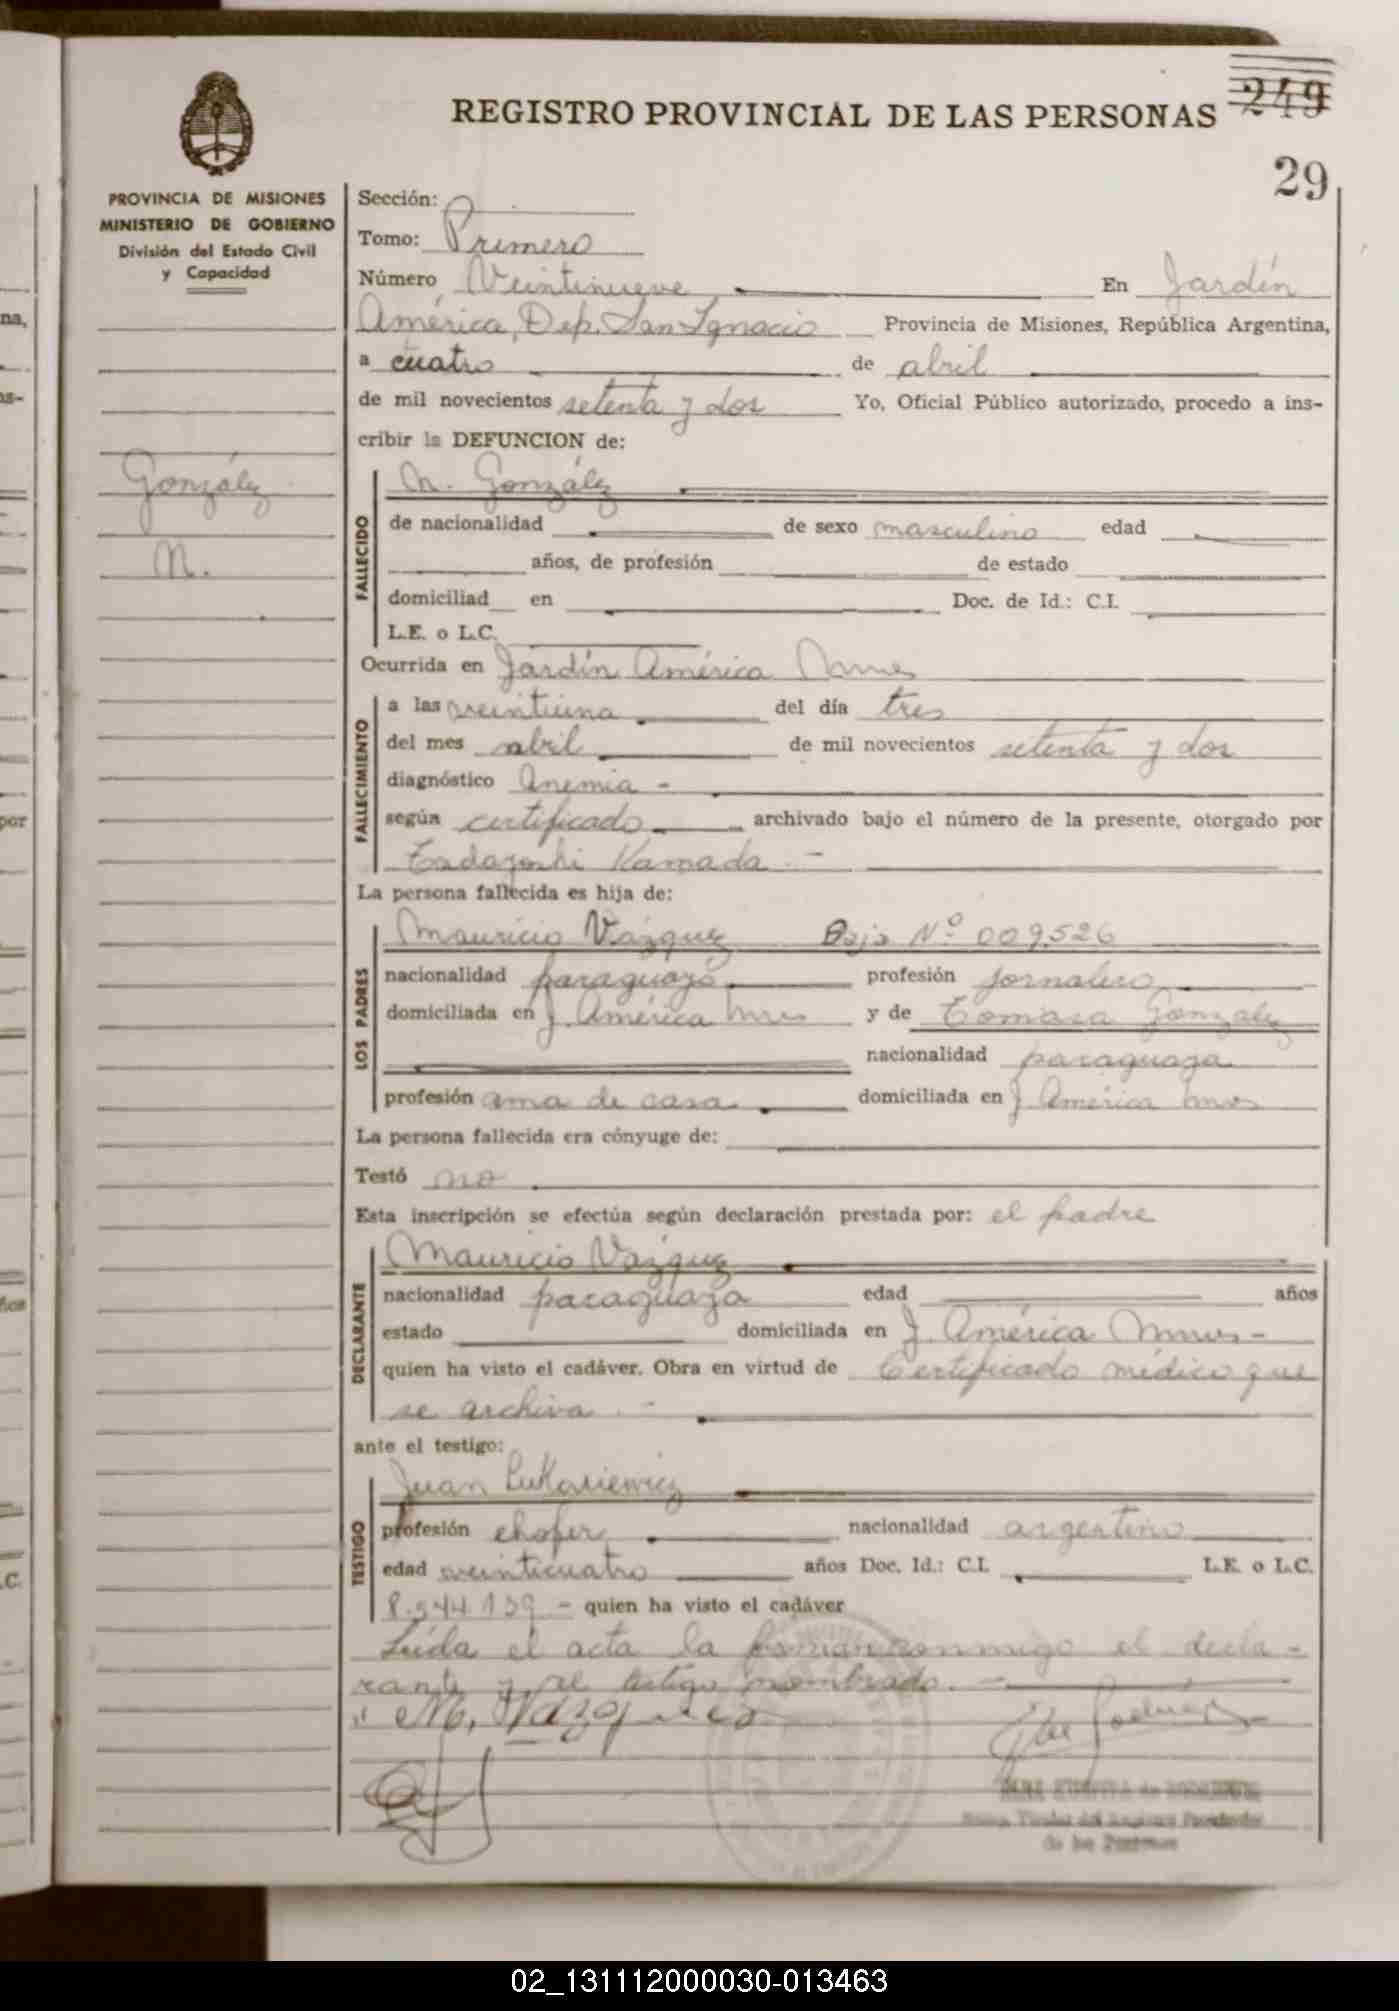 249
REGISTRO PROVINCIAL DE LAS PERSONAS
29
PROVINCIA DE MISIONES
MINISTERIO DE GOBIERNO
División del Estado Civil
y Capacidad
González
N.
Sección:
Tomo: Primero
Número Veintinueve En Jardín
América, Dep. San Ignacio Provincia de Misiones, República Argentina,
a cuatro de abril
de mil novecientos setenta y dos Yo, Oficial Público autorizado, procedo a ins-
cribir la DEFUNCION de:
FALLECIDO
N. González
de nacionalidad de sexo masculino edad
años, de profesión de estado
domiciliad en Doc. de Id.: C.I.
L.E. o L.C.
Ocurrida en Jardín América
FALLECIMIENTO
a las veintiuna del día tres
del mes abril de mil novecientos setenta y dos
diagnóstico Anemia -
según certificado archivado bajo el número de la presente, otorgado por
Tadayoshi Kamada. -
La persona fallecida es hija de:
LOS PADRES
Mauricio Vázquez Bajo Nº 009.526
nacionalidad paraguayo profesión jornalero
domiciliada en J. América Mnes y de Tomasa González
nacionalidad paraguaya
profesión ama de casa domiciliada en J. América Mnes
La persona fallecida era cónyuge de:
Testó no
Esta inscripción se efectúa según declaración prestada por: el padre
DECLARANTE
Mauricio Vázquez
nacionalidad paraguaya edad años
estado domiciliada en J. América Mnes -
quien ha visto el cadáver. Obra en virtud de Certificado médico que
se archiva. -
ante el testigo:
TESTIGO
Juan Lukasiewicz
profesión chofer nacionalidad argentino
edad veinticuatro años Doc. Id.: C.I. L.E. o L.C.
8.544.139 - quien ha visto el cadáver
Leída el acta la firman conmigo el decla-
rante y el testigo nombrado. -
M. Vazquez
de las Personas
02_131112000030-013463